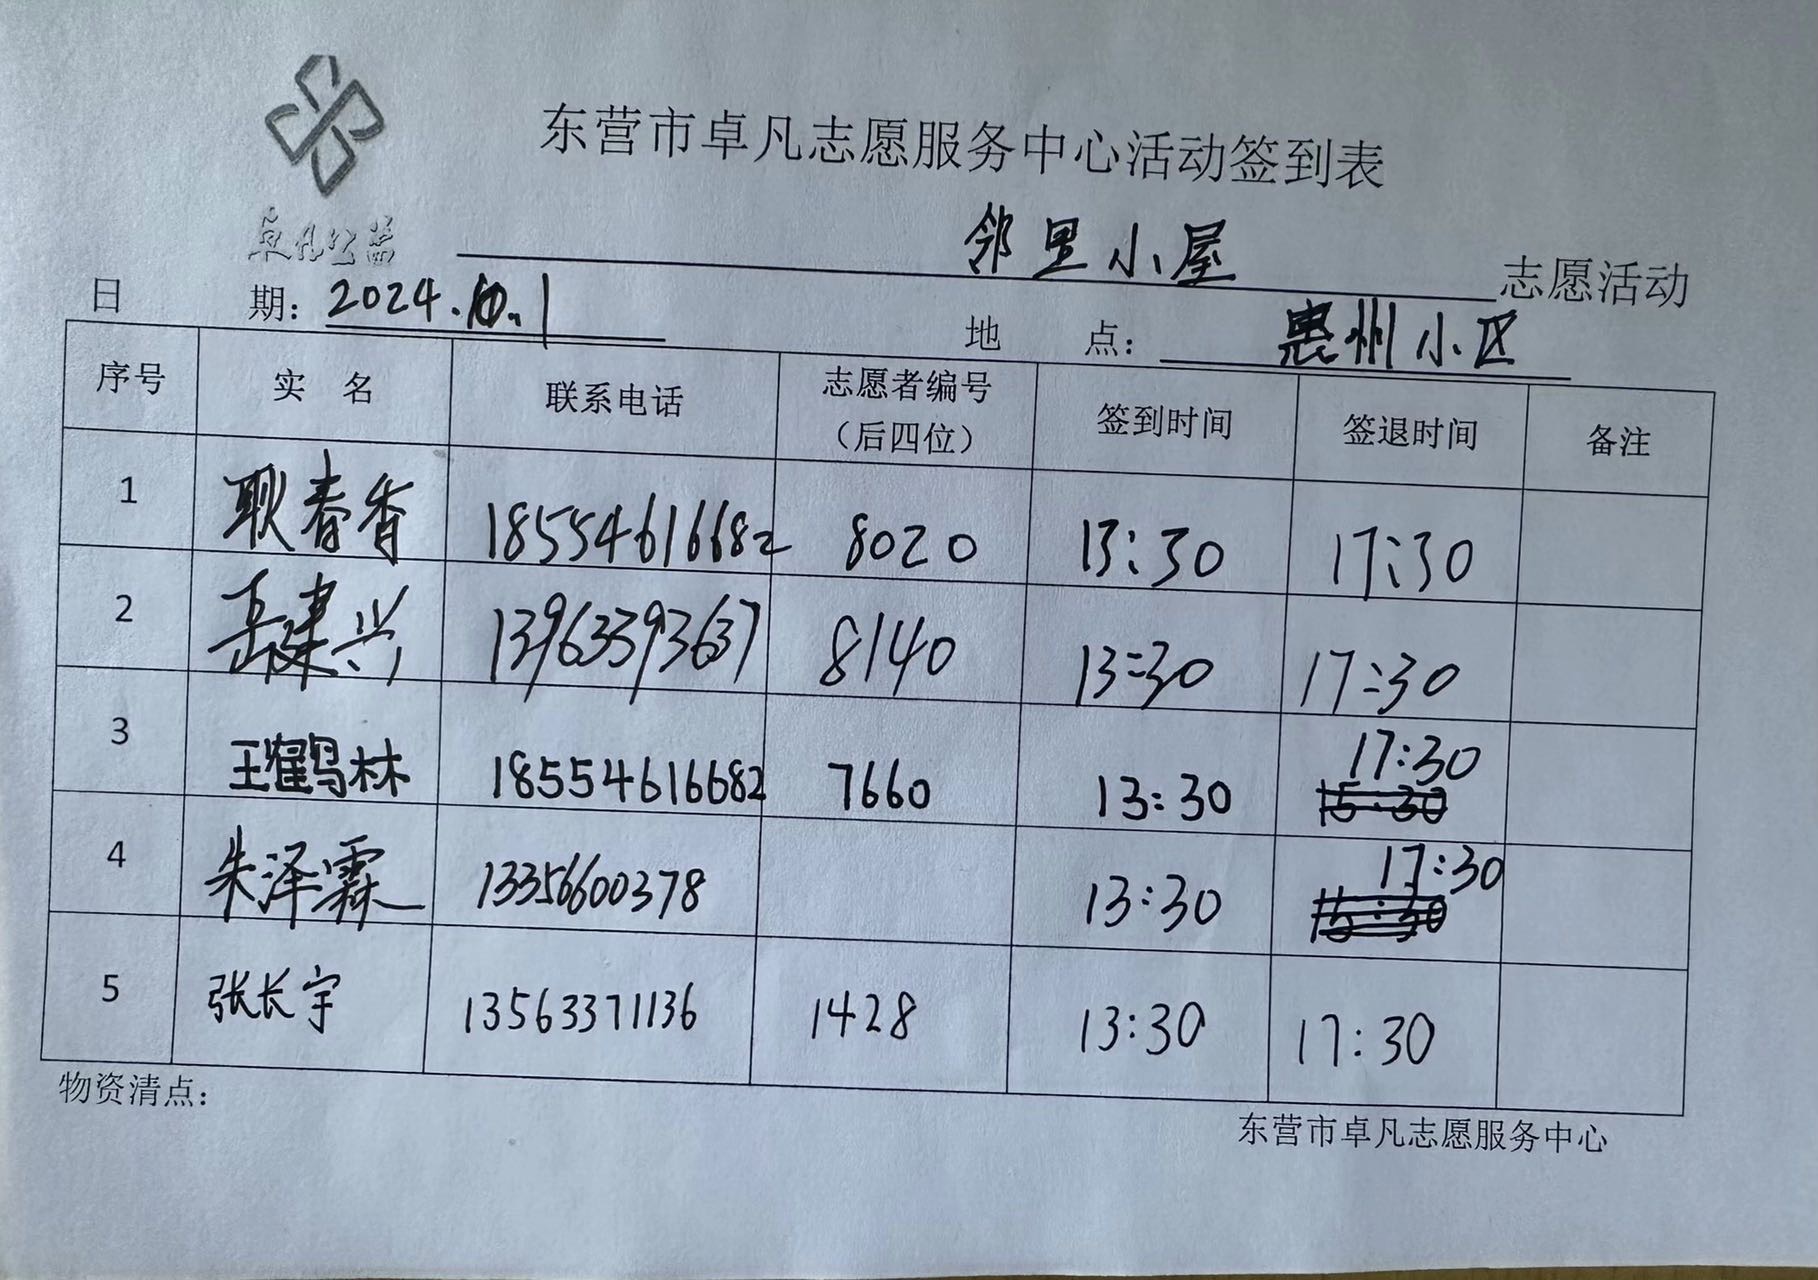 东营市卓凡志愿服务中心活动签到表
卓凡公益
邻里小屋 志愿活动
日 期：2024.10.1 地 点：惠州小区
序号 实 名 联系电话 志愿者编号（后四位） 签到时间 签退时间 备注
1 耿春香 18554616682 8020 13:30 17:30
2 岳建兴 13963393637 8140 13:30 17:30
3 王鹤林 18554616682 7660 13:30 17:30 15:30
4 朱泽霖 13356600378 13:30 17:30 15:30
5 张长宇 13563371136 1428 13:30 17:30
物资清点：
东营市卓凡志愿服务中心